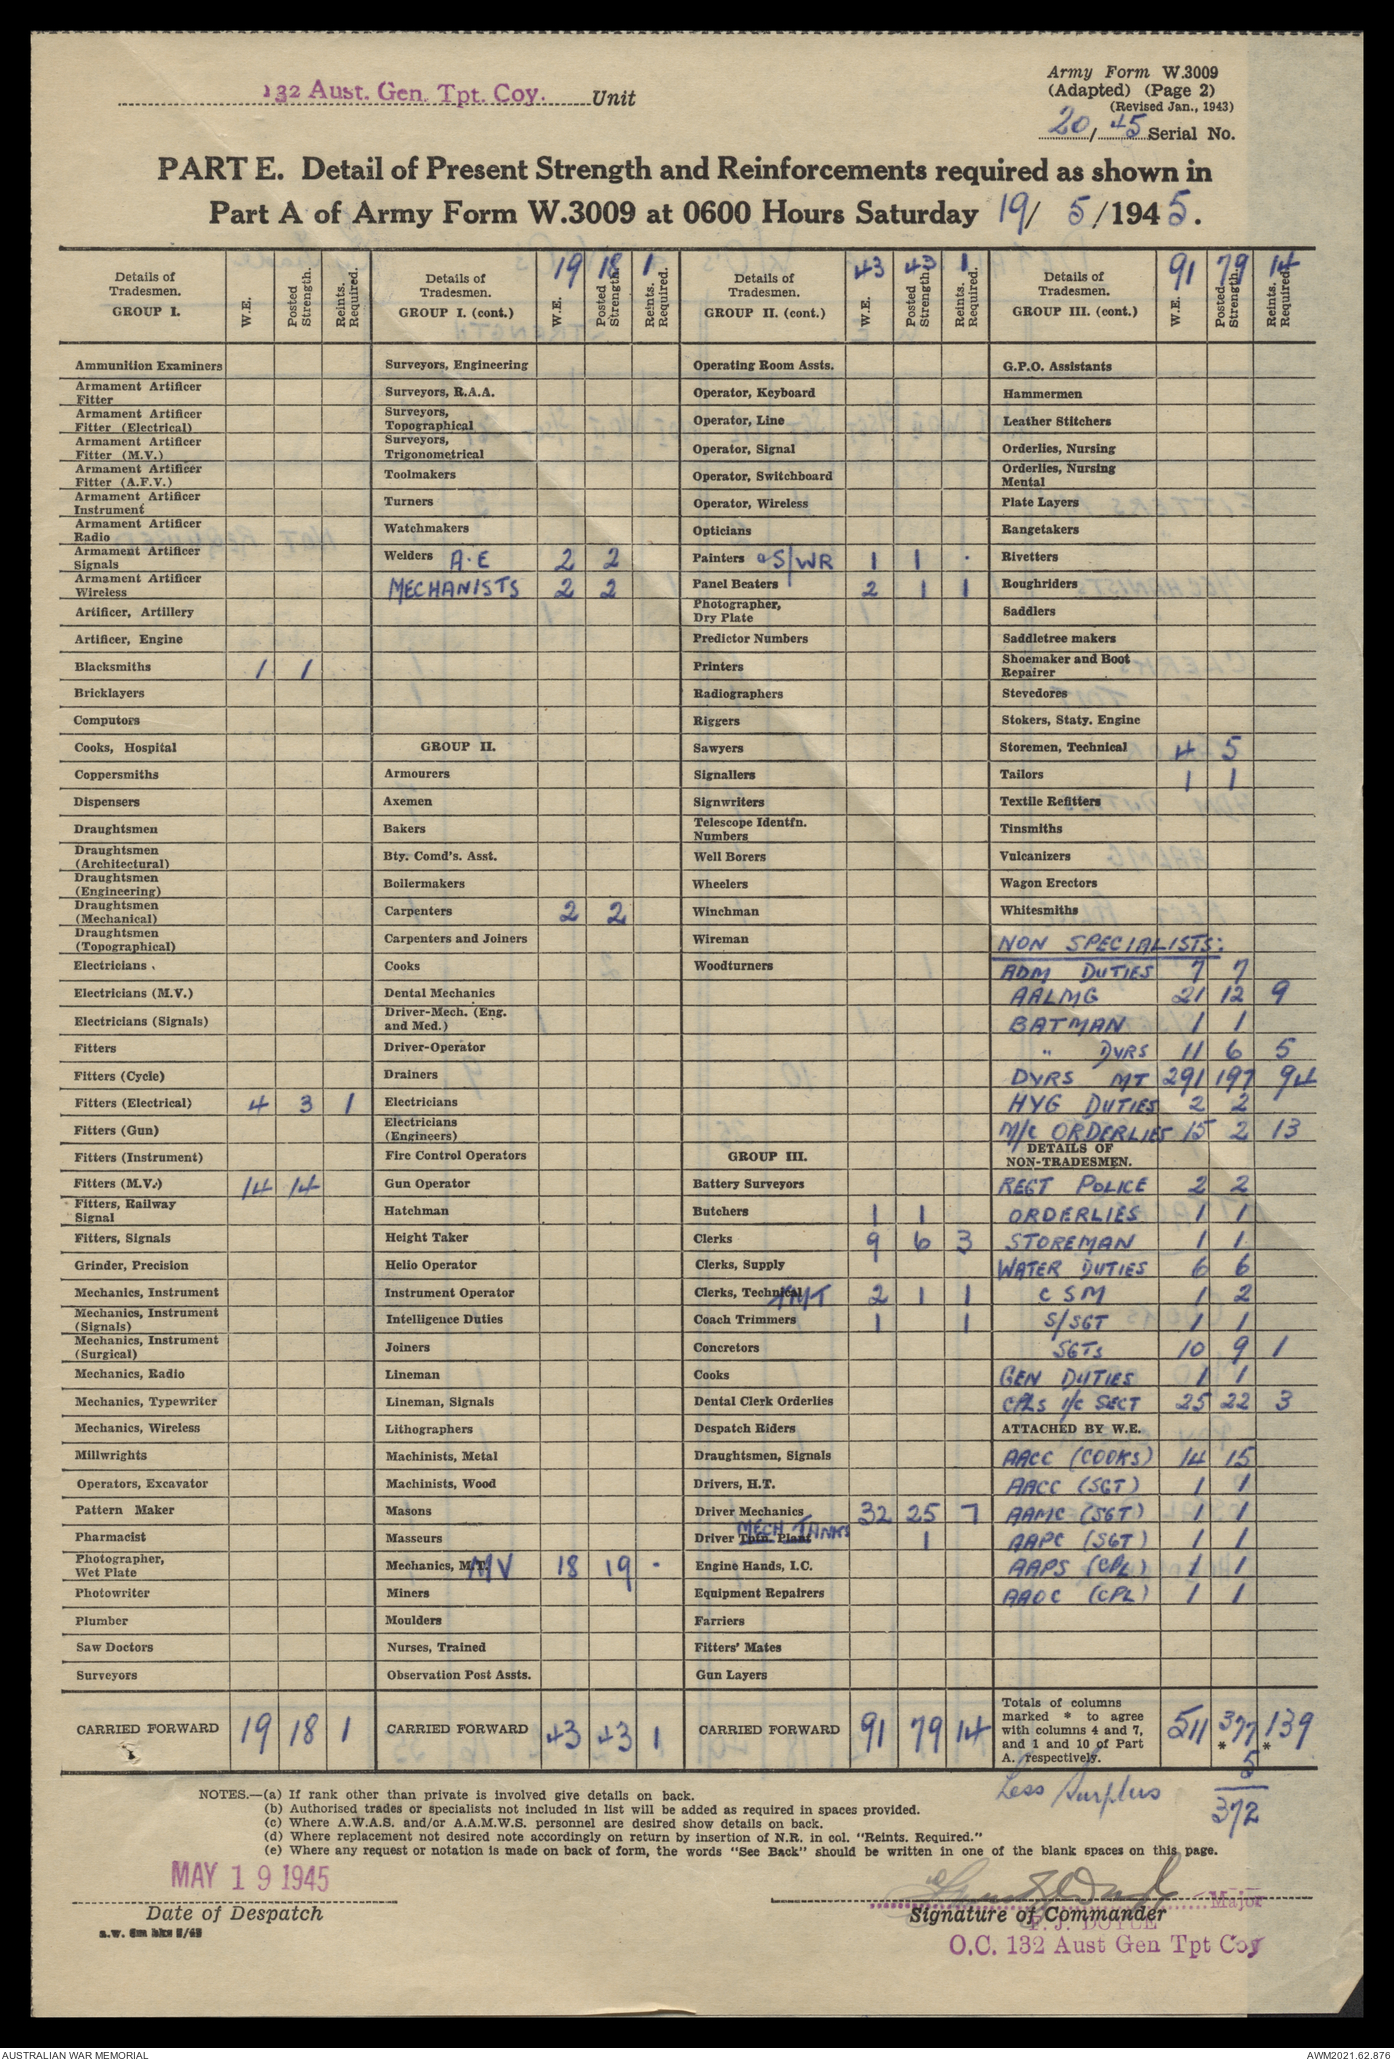 132 Aust. Gen. Tpt. Coy. Unit
Army Form W.3009
(Adapted) (Page 2)
(Revised Jan., 1943)
20/45 Serial No.
PART E. Detail of Present Strength and Reinforcements required as shown in
Part A of Army Form W.3009 at 0600 Hours Saturday 19/ 5/1945.
Details of Tradesmen. GROUP I. W.E. Posted Strength. Reints. Required.
Ammunition Examiners
Armament Artificer Fitter
Armament Artificer Fitter (Electrical)
Armament Artificer Fitter (M.V.)
Armament Artificer Fitter (A.F.V.)
Armament Artificer Instrument
Armament Artificer Radio
Armament Artificer Signals
Armament Artificer Wireless
Artificer, Artillery
Artificer, Engine
Blacksmiths 1 1
Bricklayers
Computors
Cooks, Hospital
Coppersmiths
Dispensers
Draughtsmen
Draughtsmen (Architectural)
Draughtsmen (Engineering)
Draughtsmen (Mechanical)
Draughtsmen (Topographical)
Electricians
Electricians (M.V.)
Electricians (Signals)
Fitters
Fitters (Cycle)
Fitters (Electrical) 4 3 1
Fitters (Gun)
Fitters (Instrument)
Fitters (M.V.) 14 14
Fitters, Railway Signal
Fitters, Signals
Grinder, Precision
Mechanics, Instrument
Mechanics, Instrument (Signals)
Mechanics, Instrument (Surgical)
Mechanics, Radio
Mechanics, Typewriter
Mechanics, Wireless
Millwrights
Operators, Excavator
Pattern Maker
Pharmacist
Photographer, Wet Plate
Photowriter
Plumber
Saw Doctors
Surveyors
CARRIED FORWARD 19 18 1
Details of Tradesmen. GROUP I. (cont.) W.E. 19 Posted Strength. 18 Reints. Required. 1
Surveyors, Engineering
Surveyors, R.A.A.
Surveyors, Topographical
Surveyors, Trigonometrical
Toolmakers
Turners
Watchmakers
Welders A.E 2 2
MECHANISTS 2 2
GROUP II.
Armourers
Axemen
Bakers
Bty. Comd's. Asst.
Boilermakers
Carpenters 2 2
Carpenters and Joiners
Cooks
Dental Mechanics
Driver-Mech. (Eng. and Med.)
Driver-Operator
Drainers
Electricians
Electricians (Engineers)
Fire Control Operators
Gun Operator
Hatchman
Height Taker
Helio Operator
Instrument Operator
Intelligence Duties
Joiners
Lineman
Lineman, Signals
Lithographers
Machinists, Metal
Machinists, Wood
Masons
Masseurs
Mechanics, M.T. MV 18 19 -
Miners
Moulders
Nurses, Trained
Observation Post Assts.
CARRIED FORWARD 43 43 1
Details of Tradesmen. GROUP II. (cont.) W.E. 43 Posted Strength. 43 Reints. Required. 1
Operating Room Assts.
Operator, Keyboard
Operator, Line
Operator, Signal
Operator, Switchboard
Operator, Wireless
Opticians
Painters & S/WR 1 1 .
Panel Beaters 2 1 1
Photographer, Dry Plate
Predictor Numbers
Printers
Radiographers
Riggers
Sawyers
Signallers
Signwriters
Telescope Identfn. Numbers
Well Borers
Wheelers
Winchman
Wireman
Woodturners
GROUP III.
Battery Surveyors
Butchers 1 1
Clerks 9 6 3
Clerks, Supply
Clerks, Technical AMT 2 1 1
Coach Trimmers 1 1
Concretors
Cooks
Dental Clerk Orderlies
Despatch Riders
Draughtsmen, Signals
Drivers, H.T.
Driver Mechanics 32 25 7
Driver Tntn. Plant MECH TANKS 1
Engine Hands, I.C.
Equipment Repairers
Farriers
Fitters' Mates
Gun Layers
CARRIED FORWARD 91 79 14
Details of Tradesmen. GROUP III. (cont.) W.E. 91 Posted Strength. 79 Reints. Required. 14
G.P.O. Assistants
Hammermen
Leather Stitchers
Orderlies, Nursing
Orderlies, Nursing Mental
Plate Layers
Rangetakers
Rivetters
Roughriders
Saddlers
Saddletree makers
Shoemaker and Boot Repairer
Stevedores
Stokers, Staty. Engine
Storemen, Technical 4 5
Tailors 1 1
Textile Refitters
Tinsmiths
Vulcanizers
Wagon Erectors
Whitesmiths
NON SPECIALISTS:
ADM DUTIES 7 7
AALMG 21 12 9
BATMAN 1 1
" DVRS 11 6 5
DVRS MT 291 197 94
HYG DUTIES 2 2
M/C ORDERLIES 15 2 13
DETAILS OF NON-TRADESMEN.
REGT POLICE 2 2
ORDERLIES 1 1
STOREMAN 1 1
WATER DUTIES 6 6
C S M 1 2
S/SGT 1 1
SGTs 10 9 1
GEN DUTIES 1 1
CPLs I/C SECT 25 22 3
ATTACHED BY W.E.
AACC (COOKS) 14 15
AACC (SGT) 1 1
AAMC (SGT) 1 1
AAPC (SGT) 1 1
AAPS (CPL) 1 1
AAOC (CPL) 1 1
Totals of columns marked * to agree with columns 4 and 7, and 1 and 10 of Part A. respectively. 511 377* 139*
Less Surplus 5
372
NOTES.—(a) If rank other than private is involved give details on back.
(b) Authorised trades or specialists not included in list will be added as required in spaces provided.
(c) Where A.W.A.S. and/or A.A.M.W.S. personnel are desired show details on back.
(d) Where replacement not desired note accordingly on return by insertion of N.R. in col. "Reints. Required."
(e) Where any request or notation is made on back of form, the words "See Back" should be written in one of the blank spaces on this page.
MAY 19 1945
Date of Despatch
Major
Signature of Commander
F. J. DOYLE
O.C. 132 Aust Gen Tpt Coy
AUSTRALIAN WAR MEMORIAL
AWM2021.62.876